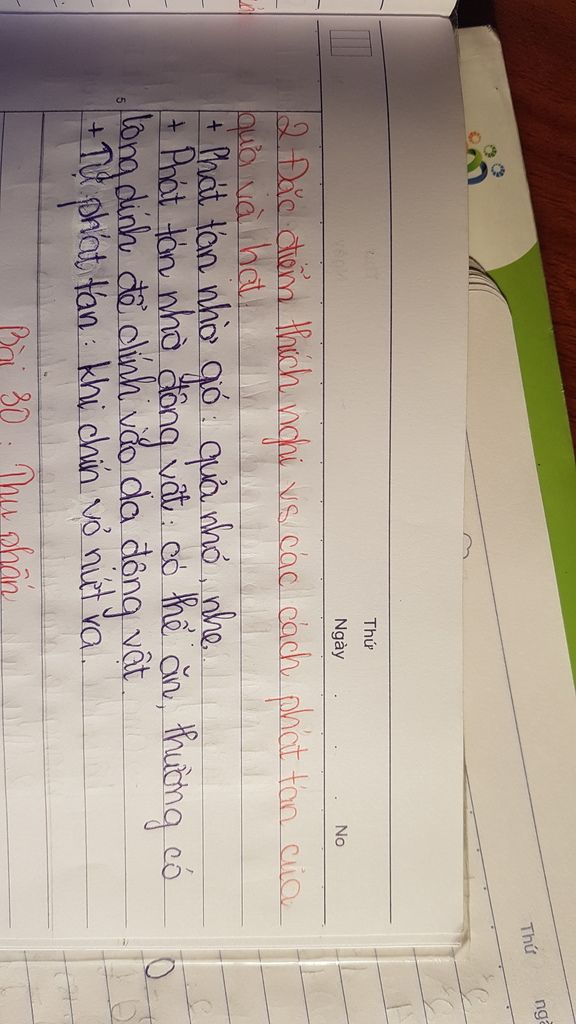 Thứ
Ngày . . . No
2. Đặc điểm thích nghi vs các cách phát tán của
quả và hạt
+ Phát tán nhờ gió: quả nhỏ, nhẹ.
+ Phát tán nhờ động vật: có thể ăn, thường có
5
lông dính để dính vào da động vật.
+ Tự phát tán: khi chín vỏ nứt ra.
Bài 30: Thụ phấn
Thứ